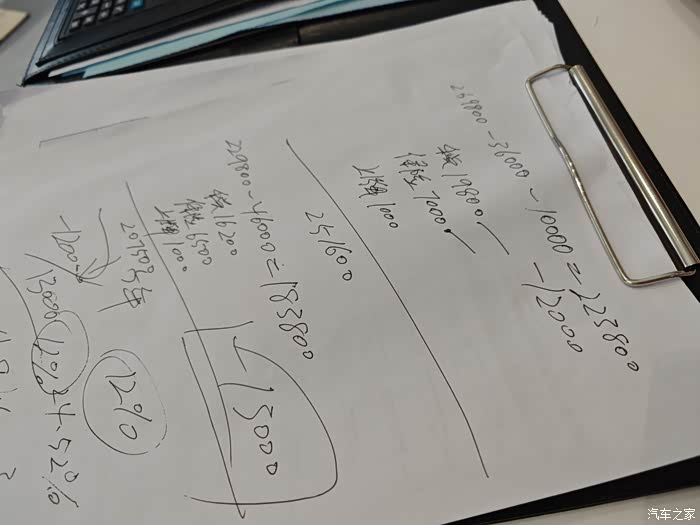 269800-36000-10000=223800
-12000
税 19800✓
保险 7000✓
上牌 1000
251600
229800-46000=183800
税 16200
保险 6500
上牌 1000
207500
-13000
12%
12%
4.52%
汽车之家